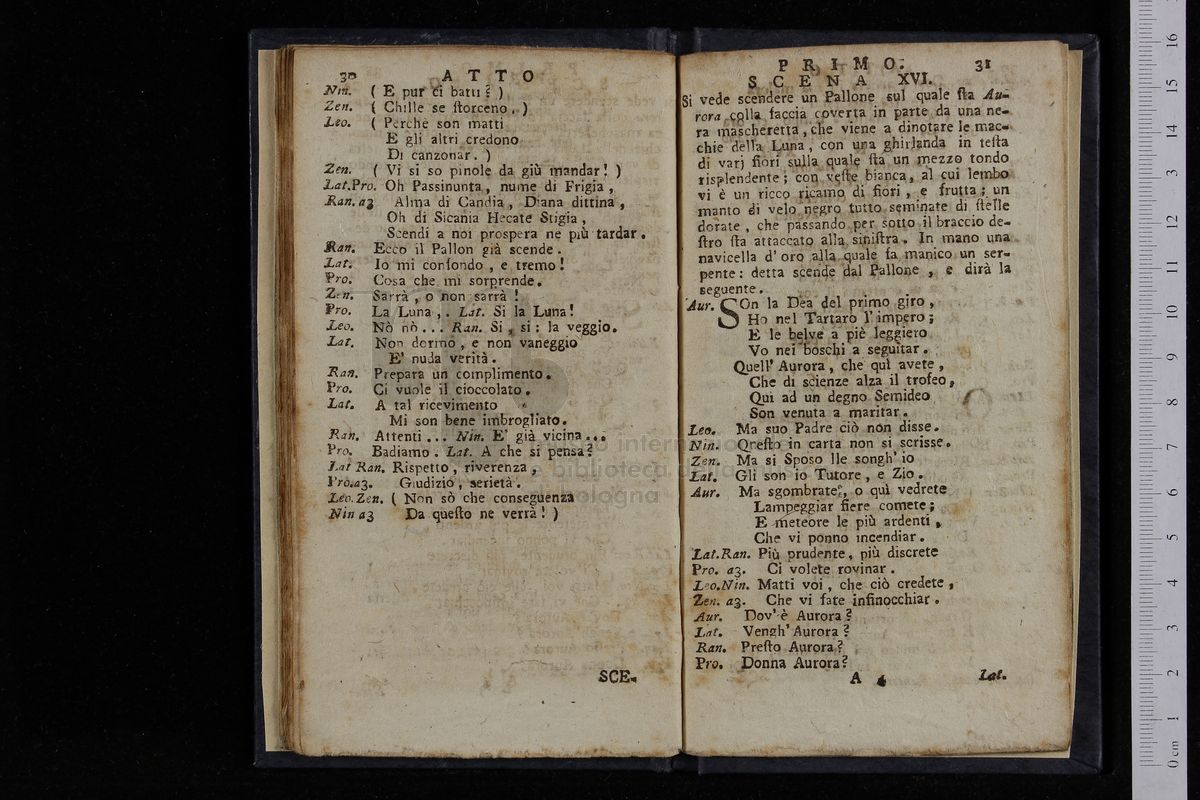 30 ATTO
Nin. ( E pur ci batti ? )
Zen. ( Chille se ſtorceno . )
Leo. ( Perchè son matti
E gli altri credono
Di canzonar . )
Zen. ( Vi si so pinole da giù mandar ! )
Lat.Pro. Oh Passinunta , nume di Frigia ,
Ran. a3 Alma di Candia , Diana dittina ,
Oh di Sicania Hecate Stigia ,
Scendi a noi prospera ne più tardar .
Ran. Ecco il Pallon già scende .
Lat. Io mi confondo , e tremo !
Pro. Cosa che mi sorprende .
Zen. Sarrà , o non sarrà !
Pro. La Luna , . Lat. Si la Luna !
Leo. Nò nò . . . Ran. Si , si : la veggio .
Lat. Non dormo , e non vaneggio
E' nuda verità .
Ran. Prepara un complimento .
Pro. Ci vuole il cioccolato .
Lat. A tal ricevimento
Mi son bene imbrogliato .
Ran. Attenti . . . Nin. E' già vicina . . .
Pro. Badiamo . Lat. A che si pensa ?
Lat Ran. Rispetto , riverenza ,
Pro.a3. Giudizio , serietà .
Leo.Zen. ( Non sò che conseguenza
Nin a3 Da queſto ne verrà ! )
SCE-
PRIMO. 31
SCENA XVI.
Si vede scendere un Pallone sul quale ſta Au-
rora colla faccia coverta in parte da una ne-
ra mascheretta , che viene a dinotare le mac-
chie della Luna , con una ghirlanda in teſta
di varj fiori sulla quale ſta un mezzo tondo
risplendente ; con veſte bianca , al cui lembo
vi è un ricco ricamo di fiori , e frutta ; un
manto di velo negro tutto seminate di ſtelle
dorate , che passando per sotto il braccio de-
ſtro ſta attaccato alla siniſtra . In mano una
navicella d' oro alla quale fa manico un ser-
pente : detta scende dal Pallone , e dirà la
seguente .
Aur. SOn la Dea del primo giro ,
Ho nel Tartaro l' impero ;
E le belve a piè leggiero
Vo nei boschi a seguitar .
Quell' Aurora , che quì avete ,
Che di scienze alza il trofeo ,
Qui ad un degno Semideo
Son venuta a maritar .
Leo. Ma suo Padre ciò non disse .
Nin. Queſto in carta non si scrisse .
Zen. Ma si Sposo lle songh' io
Lat. Gli son io Tutore , e Zio .
Aur. Ma sgombrate , o quì vedrete
Lampeggiar fiere comete ;
E meteore le più ardenti ,
Che vi ponno incendiar .
Lat.Ran. Più prudente , più discrete
Pro. a3. Ci volete rovinar .
Leo.Nin. Matti voi , che ciò credete ,
Zen. a3. Che vi fate infinocchiar .
Aur. Dov' è Aurora ?
Lat. Vengh' Aurora ?
Ran. Preſto Aurora ?
Pro. Donna Aurora ?
A 4 Lat.